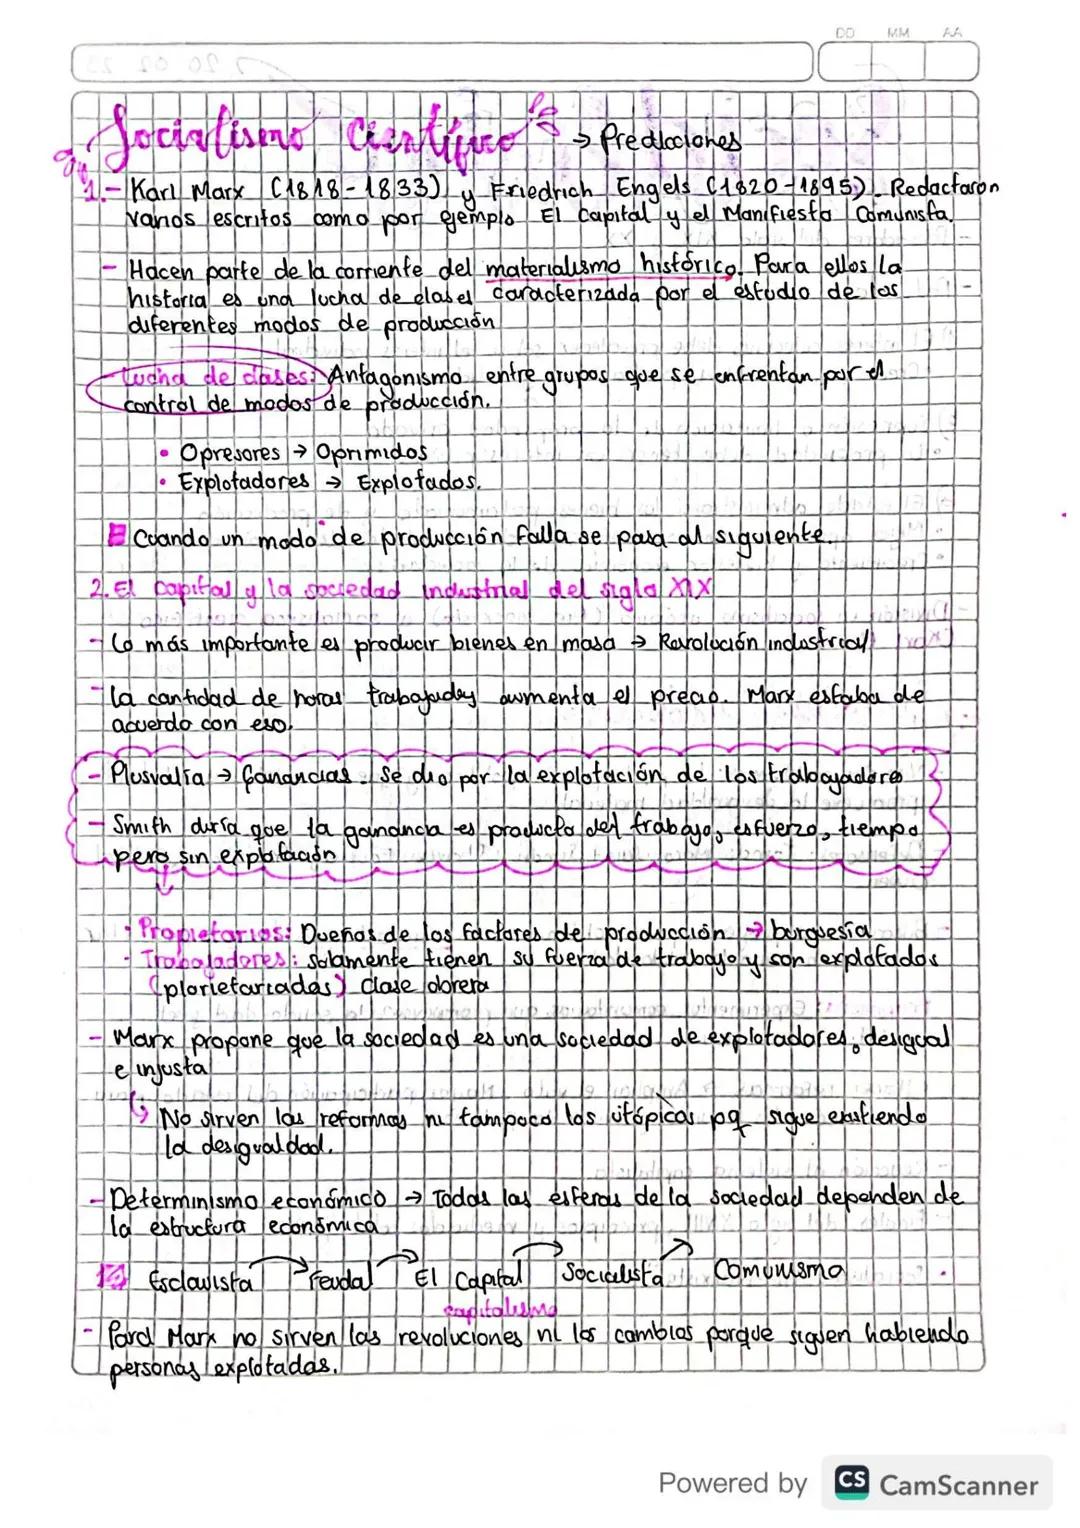 DD MM AA
Socialismo Científico → Predicciones
1.- Karl Marx (1818-1833) y Friedrich Engels (1820-1895). Redactaron
varios escritos como por ejemplo El Capital y el Manifiesto Comunista.
- Hacen parte de la corriente del materialismo histórico. Para ellos la
historia es una lucha de clases caracterizada por el estudio de los
diferentes modos de producción
Lucha de clases: Antagonismo entre grupos que se enfrentan por el
control de modos de producción.
• Opresores → Oprimidos
• Explotadores → Explotados.
Cuando un modo de producción falla se pasa al siguiente.
2. El Capital y la sociedad industrial del siglo XIX
- Lo más importante es producir bienes en masa → Revolución industrial
- la cantidad de horas trabajadas aumenta el precio. Marx estaba de
acuerdo con eso.
- Plusvalía → Ganancias. Se dio por la explotación de los trabajadores
- Smith diría que la ganancia es producto del trabajo, esfuerzo, tiempo
pero sin explotación
· Propietarios: Dueños de los factores de producción → burguesía
- Trabajadores: solamente tienen su fuerza de trabajo y son explotados
(plorietariadas) clase obrera
- Marx propone que la sociedad es una sociedad de explotadores, desigual
e injusta
↳ No sirven las reformas ni tampoco los utópicas pq sigue existiendo
la desigualdad.
- Determinismo económico → Todas las esferas de la sociedad dependen de
la estructura económica
Esclavista Feudal El Capital Socialista Comunismo
capitalismo
- Para Marx no sirven las revoluciones ni los cambios porque siguen habiendo
personas explotadas.
Powered by CS CamScanner